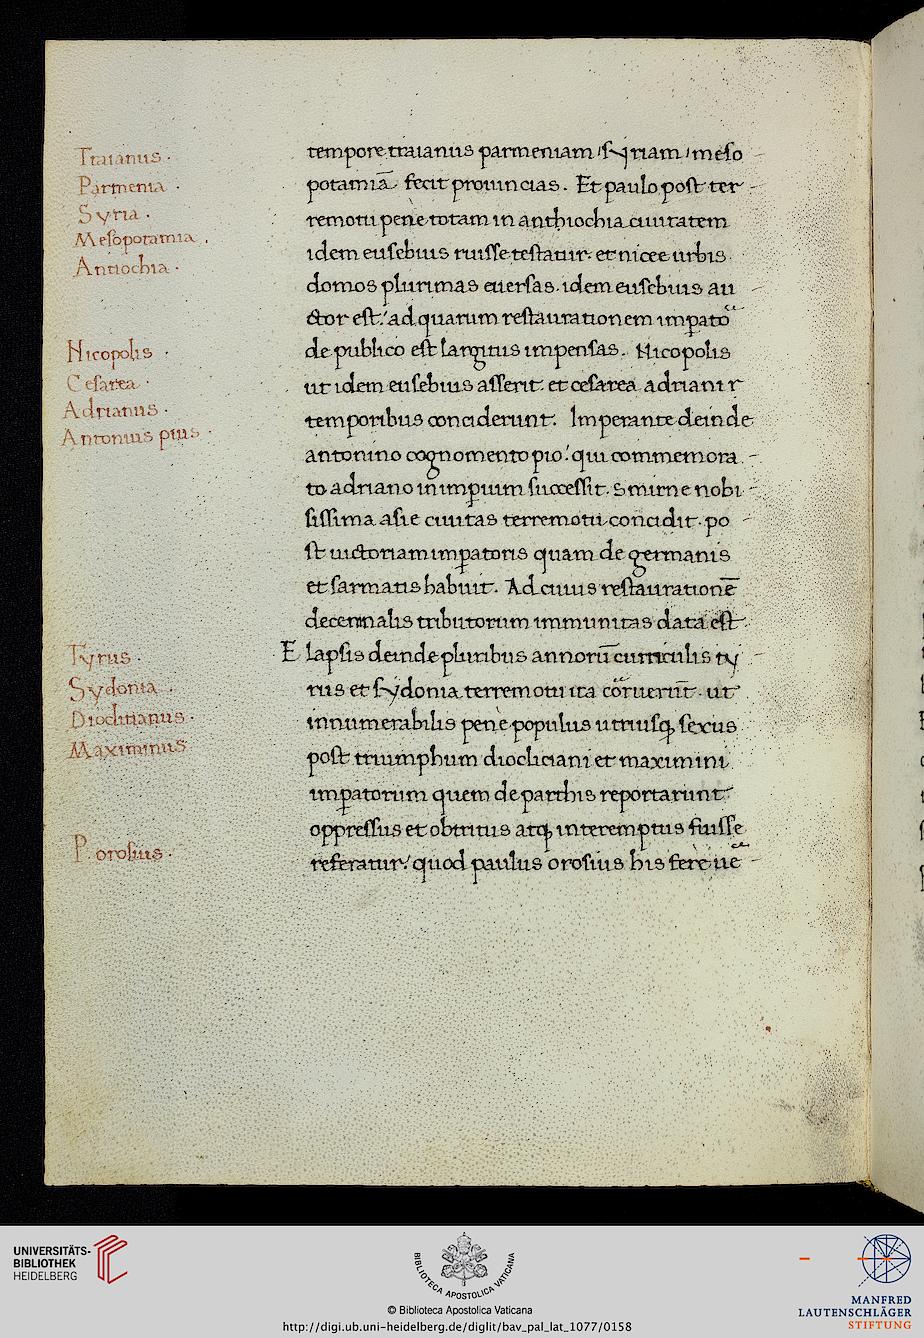 Traianus ·
Parmenia ·
Syria ·
Mesopotamia .
Antiochia ·
Nicopolis ·
Cesarea ·
Adrianus ·
Antonius pius ·
Tyrus ·
Sydonia .
Dioclitianus ·
Maximinus
P. orosius ·
tempore traianus parmeniam, syriam, meso
potamiā fecit prouincias. Et paulo post ter
remotu pene totam in anthiochia ciuitatem
idem eusebius ruisse testatur. et nicee urbis
domos plurimas euersas. idem eusebius au
ctor est. ad quarum restaurationem imp̄ator
de publico est largitus impensas. Nicopolis
ut idem eusebius asserit et cesarea adriani r
temporibus conciderunt. Imperante deinde
antonino cognomento pio. qui commemora
to adriano in imꝑium successit. Smirne nobi
sissima asie ciuitas terremotu concidit. po
st uictoriam imꝑatoris quam de germanis
et sarmatis habuit. Ad cuius restaurationē
decennalis tributorum immunitas data est.
Elapsis deinde pluribus annorū curriculis ty
rus et sydonia terremotu ita corruerūt. ut
innumerabilis pene populus utriusq; sexus
post triumphum diocliciani et maximini
imꝑatorum quem de parthis reportarunt.
oppressus et obtritus atq; interemptus fuisse
referatur. quod paulus orosius his fere ue
UNIVERSITÄTS-
BIBLIOTHEK
HEIDELBERG
BIBLIOTECA APOSTOLICA VATICANA
© Biblioteca Apostolica Vaticana
http://digi.ub.uni-heidelberg.de/diglit/bav_pal_lat_1077/0158
MANFRED
LAUTENSCHLÄGER
STIFTUNG